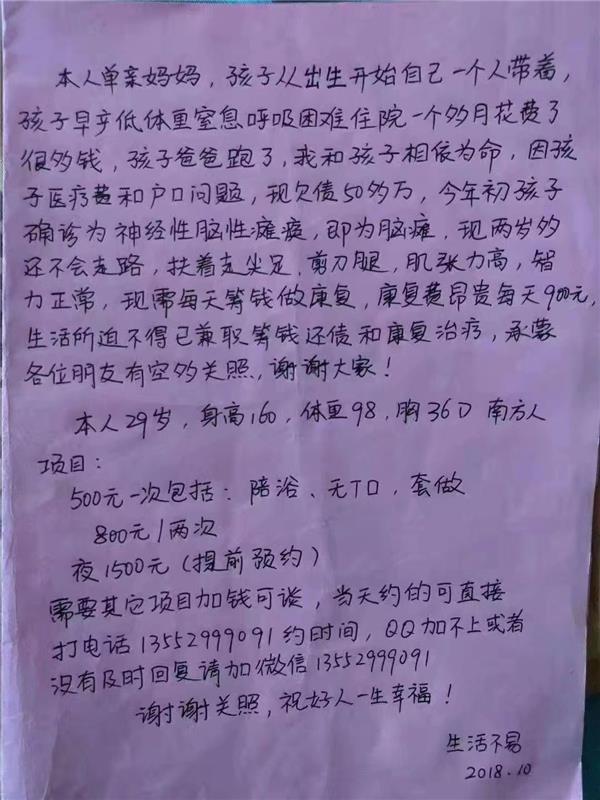 本人单亲妈妈，孩子从出生开始自己一个人带着，
孩子早产低体重窒息呼吸困难住院一个多月花费了
很多钱，孩子爸爸跑了，我和孩子相依为命，因孩
子医疗费和户口问题，现欠债50多万，今年初孩子
确诊为神经性脑性瘫痪，即为脑瘫，现两岁多
还不会走路，扶着走尖足，剪刀腿，肌张力高，智
力正常，现需每天筹钱做康复，康复费昂贵每天900元，
生活所迫不得已兼职筹钱还债和康复治疗，承蒙
各位朋友有空多关照，谢谢大家！
本人29岁，身高160，体重98，胸36D 南方人
项目：
500元一次包括：陪浴、无TD，套做
800元/两次
夜1500元（提前预约）
需要其它项目加钱可谈，当天约的可直接
打电话13552999091约时间，QQ加不上或者
没有及时回复请加微信13552999091
谢谢关照，祝好人一生幸福！
生活不易
2018.10